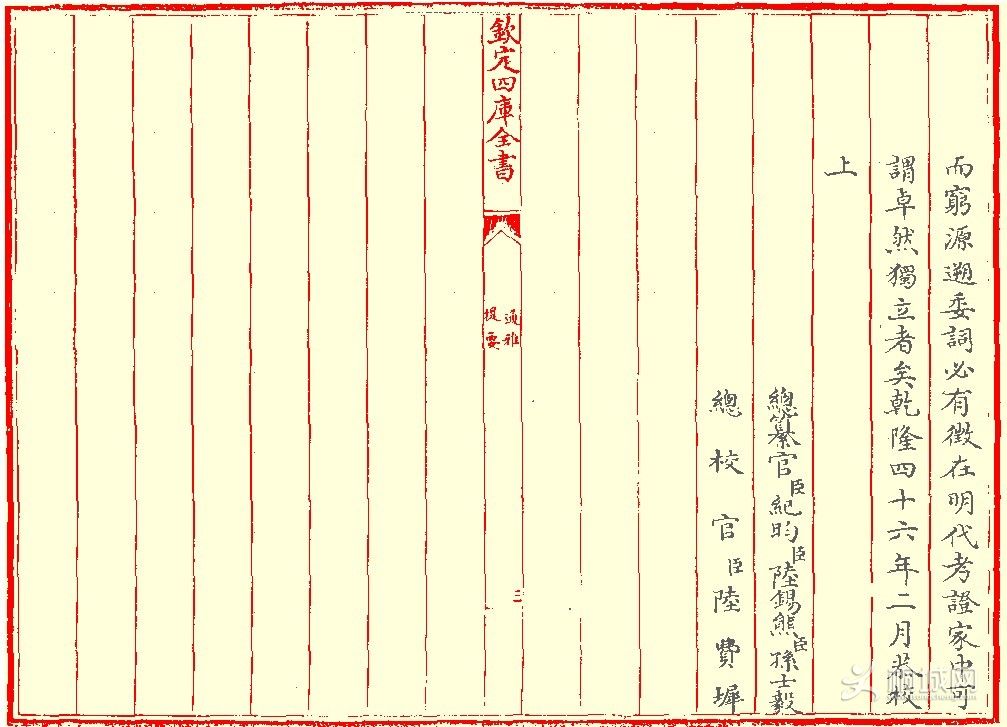 而窮源遡委詞必有徴在明代考證家中可
謂卓然獨立者矣乾隆四十六年二月恭校
上
總纂官臣紀昀臣陸錫熊臣孫士毅
總校官臣陸費墀
欽定四庫全書
通雅
提要
三
桐城网